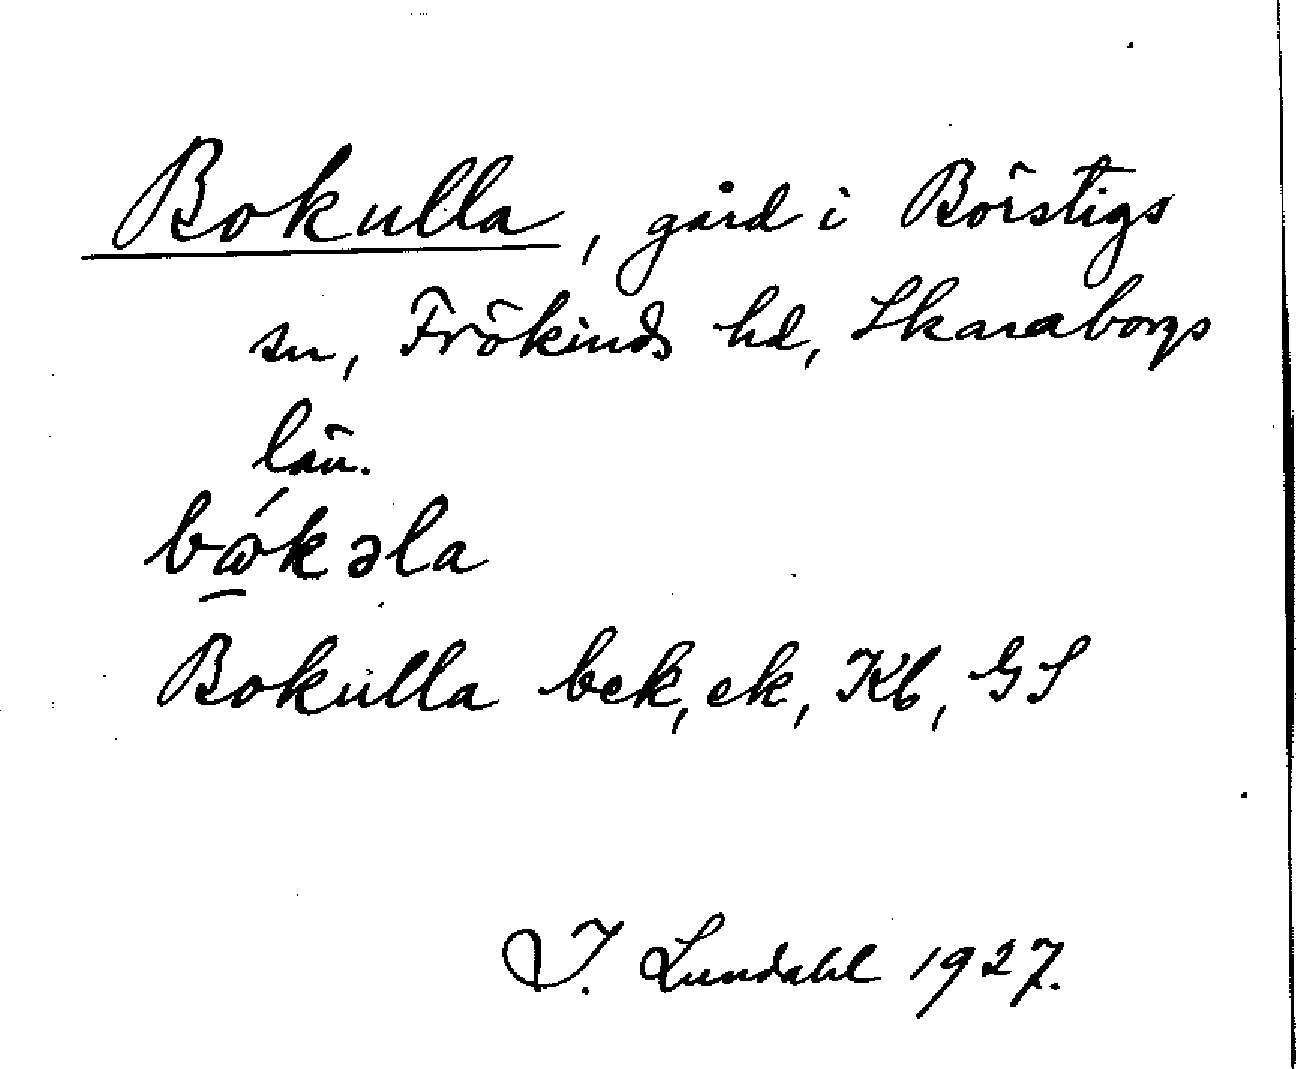 Bokulla, gård i Börstigs
sn, Frökinds hd, Skaraborgs
län.
bώ̱kəla
Bokulla bek, ek, Kb, GS
I. Lundahl 1927.